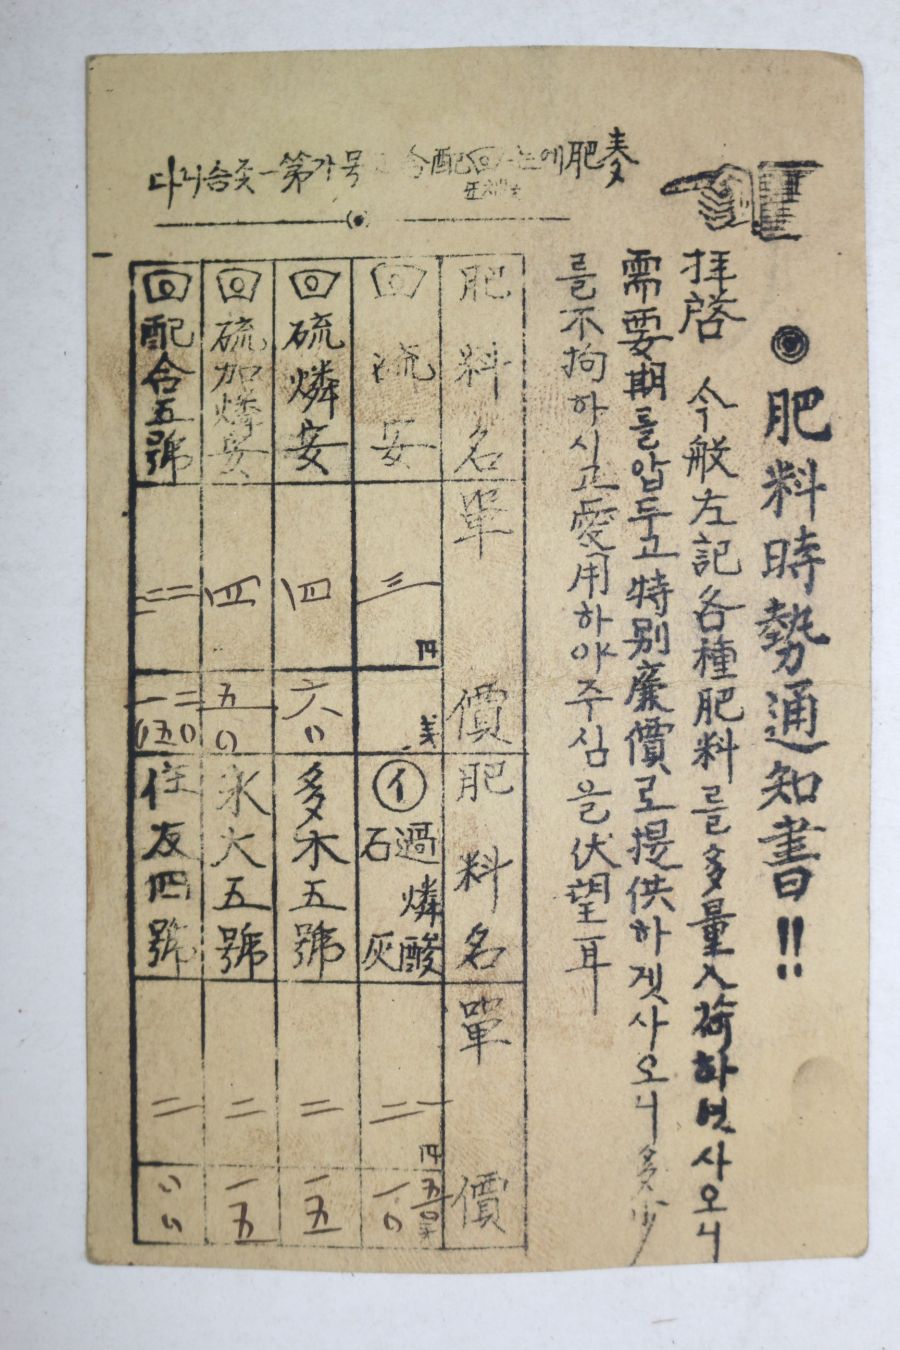 麥肥에는 配合 号가 第一 죳슴니다
◉肥料時勢通知書!!
拝啓 今般左記各種肥料를多量入荷하엿사오니
需要期를압두고特別廉價로提供하겟사오니多少
를不拘하시고愛用하야주심을伏望耳
肥料名 單價 肥料名 單價
硫安 三 円 ㋑過燐酸石灰 二 円
硫燐安 四 六〇 多木五號 二 一五
硫加燐安 四 五〇 永大五號 二 一五
配合五號 住友四號 二 〇〇